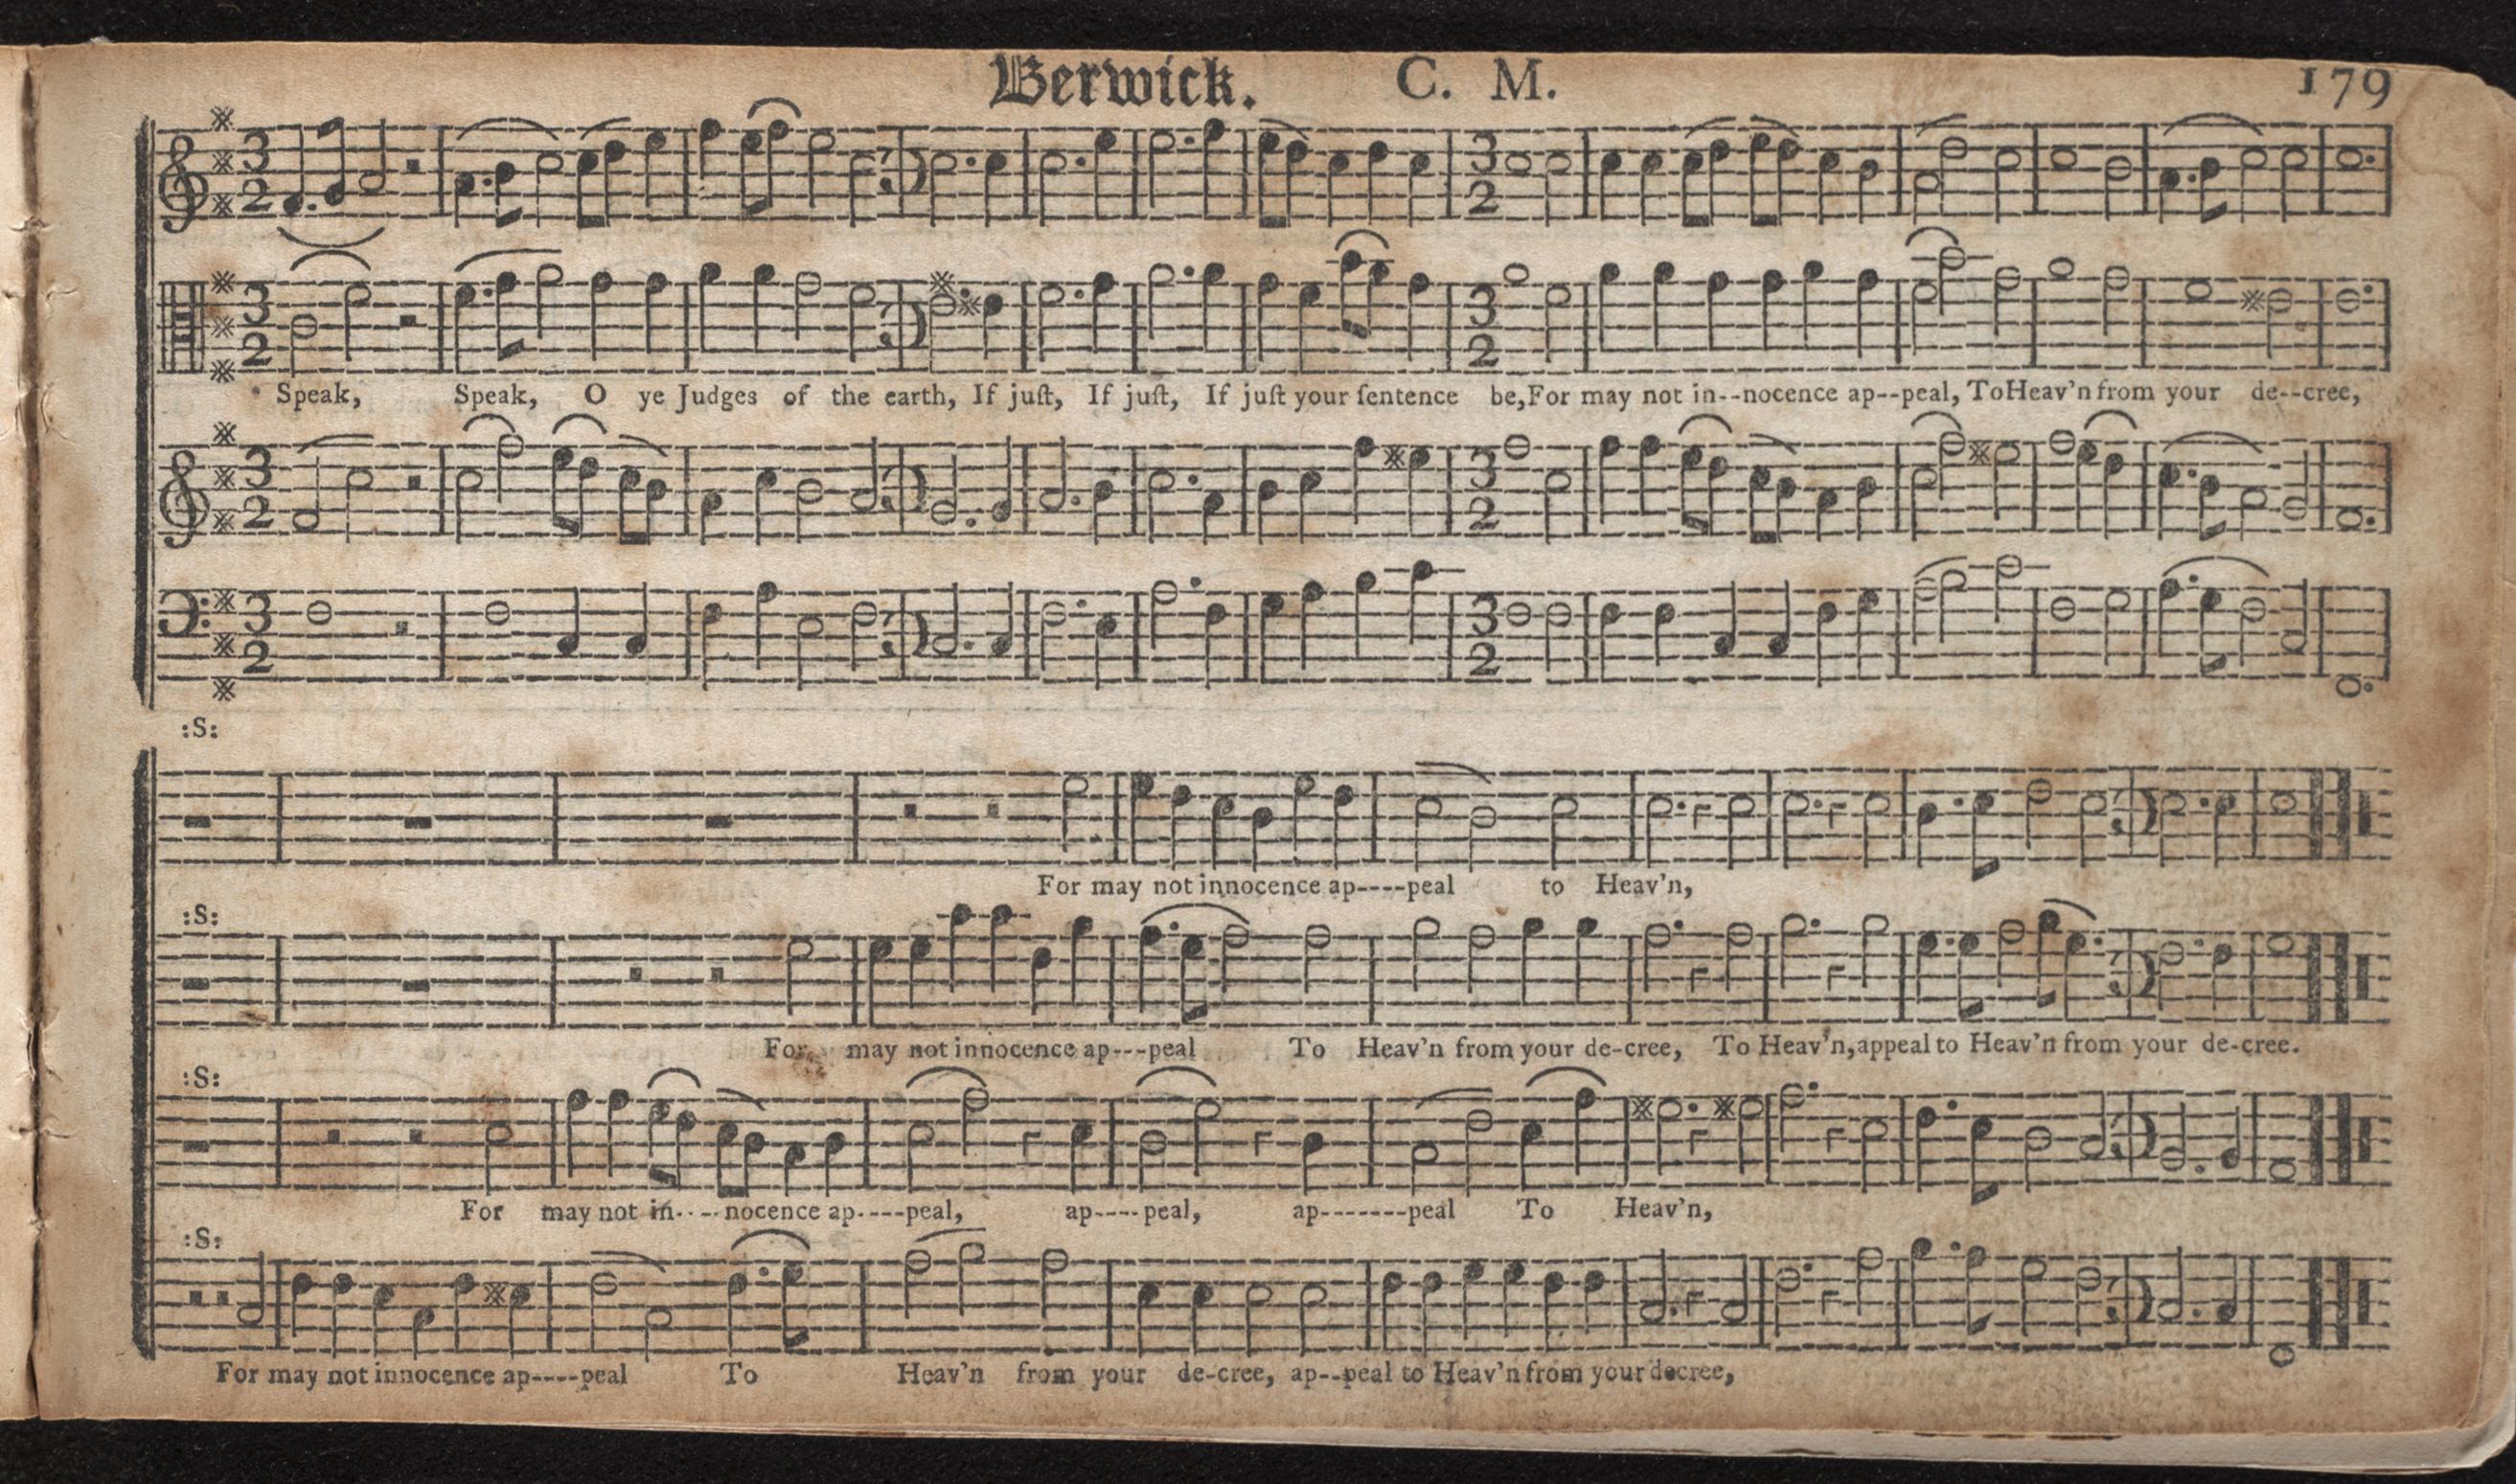 Berwick. C. M. 179
Speak, Speak, O ye Judges of the earth, If juſt, If juſt, If juſt your ſentence be, For may not in--nocence ap--peal, To Heav'n from your de--cree,
:S:
For may not innocence ap----peal to Heav'n,
:S:
For may not innocence ap---peal To Heav'n from your de-cree, To Heav'n, appeal to Heav'n from your de-cree.
:S:
For may not in----nocence ap----peal, ap----peal, ap-------peal To Heav'n,
:S:
For may not innocence ap----peal To Heav'n from your de-cree, ap--peal to Heav'n from your decree,